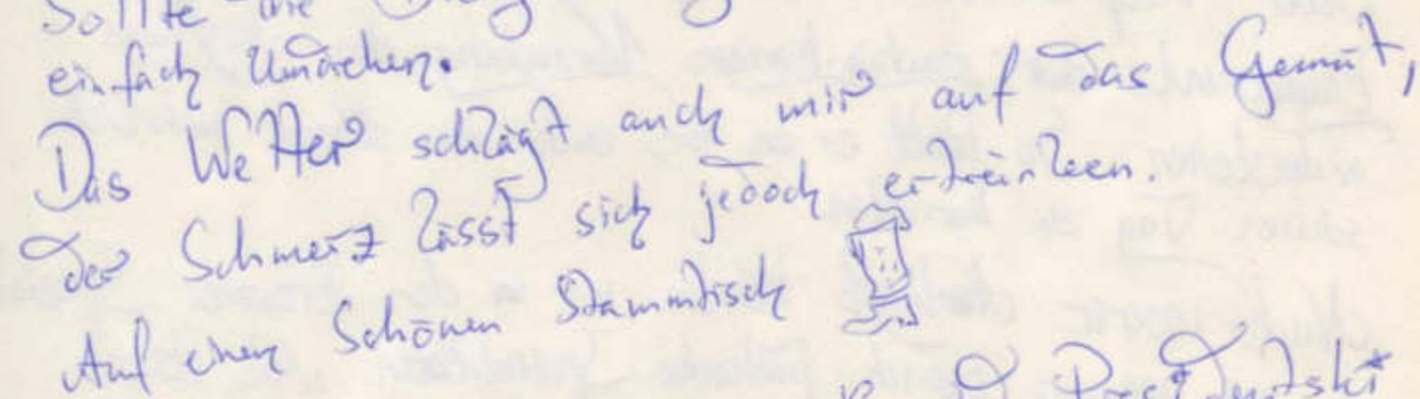 Sollte die
einfach Umdrehen.
Das Wetter schlägt auch mir auf das Gemüt,
der Schmerz lässt sich jedoch ertränken.
Auf einen Schönen Stammtisch